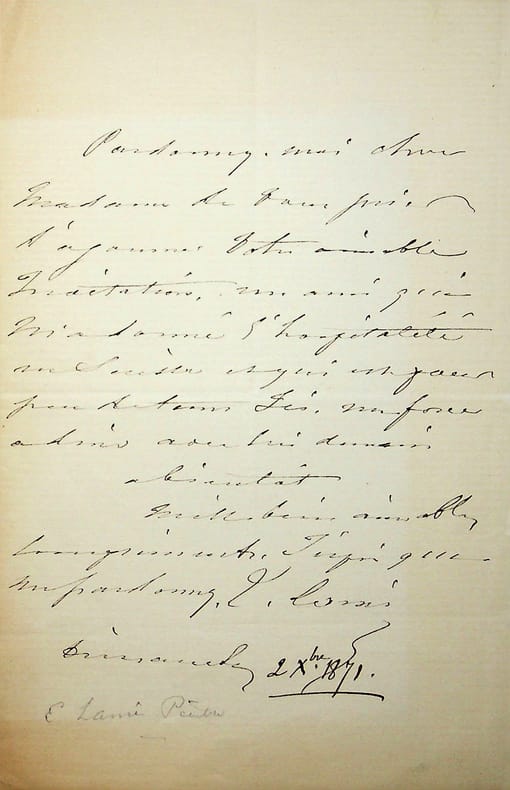 Pardonnez-moi chère
Madame de vous prier
d'ajourner votre aimable
Invitation, un ami qui
m'a donné l'hospitalité
en Suisse et qui est pour
peu de tems Ici, me force
a diner avec lui demain
a bientôt
Mille bien aimables
compliments. J'espère que
me pardonnez, E. Lami
Dimanche 2 Xbre 1871.
E Lami Peintre